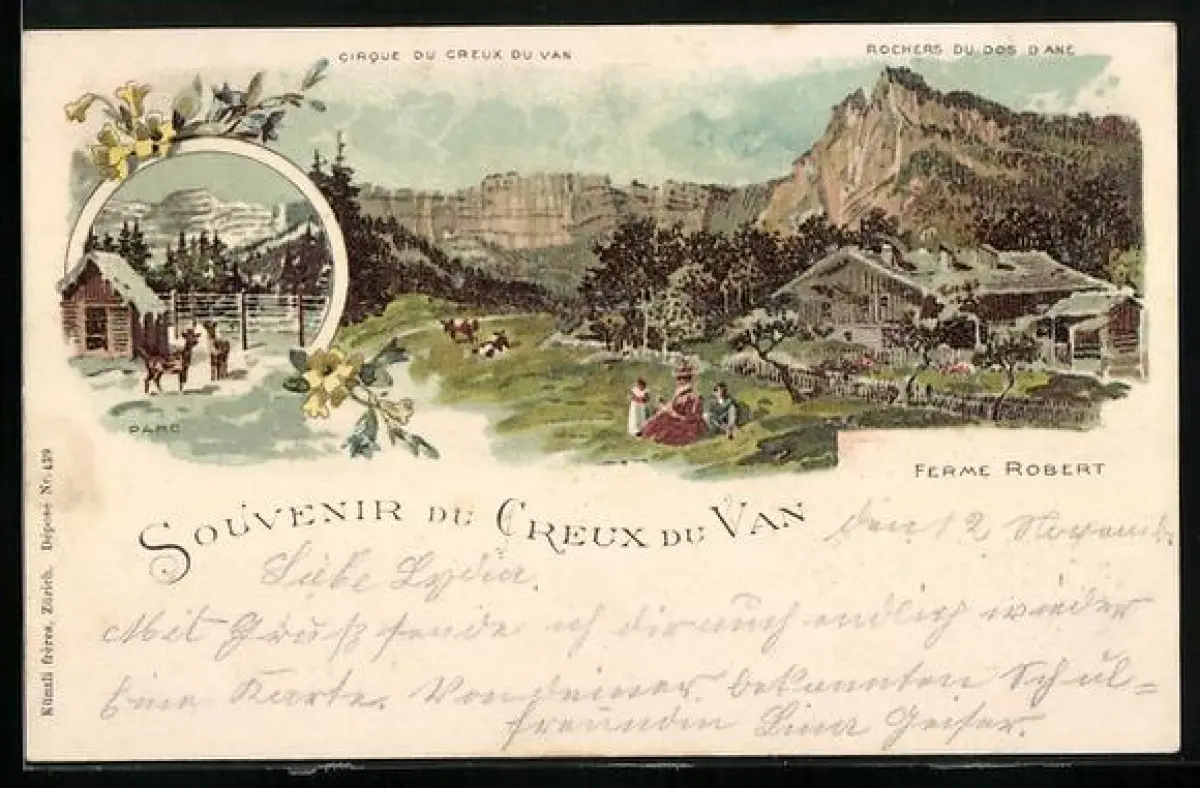 CIRQUE DU CREUX DU VAN
ROCHERS DU DOS D'ANE
PARC
FERME ROBERT
SOUVENIR DU CREUX DU VAN
den 12 Novemb.
Liebe Lydia.
Mit Gruß sende ich dir auch endlich wieder
Eine Karte. Von deiner bekannten Schul=
freundin Lina Geiser.
Künzli frères, Zürich. Déposé Nr. 429